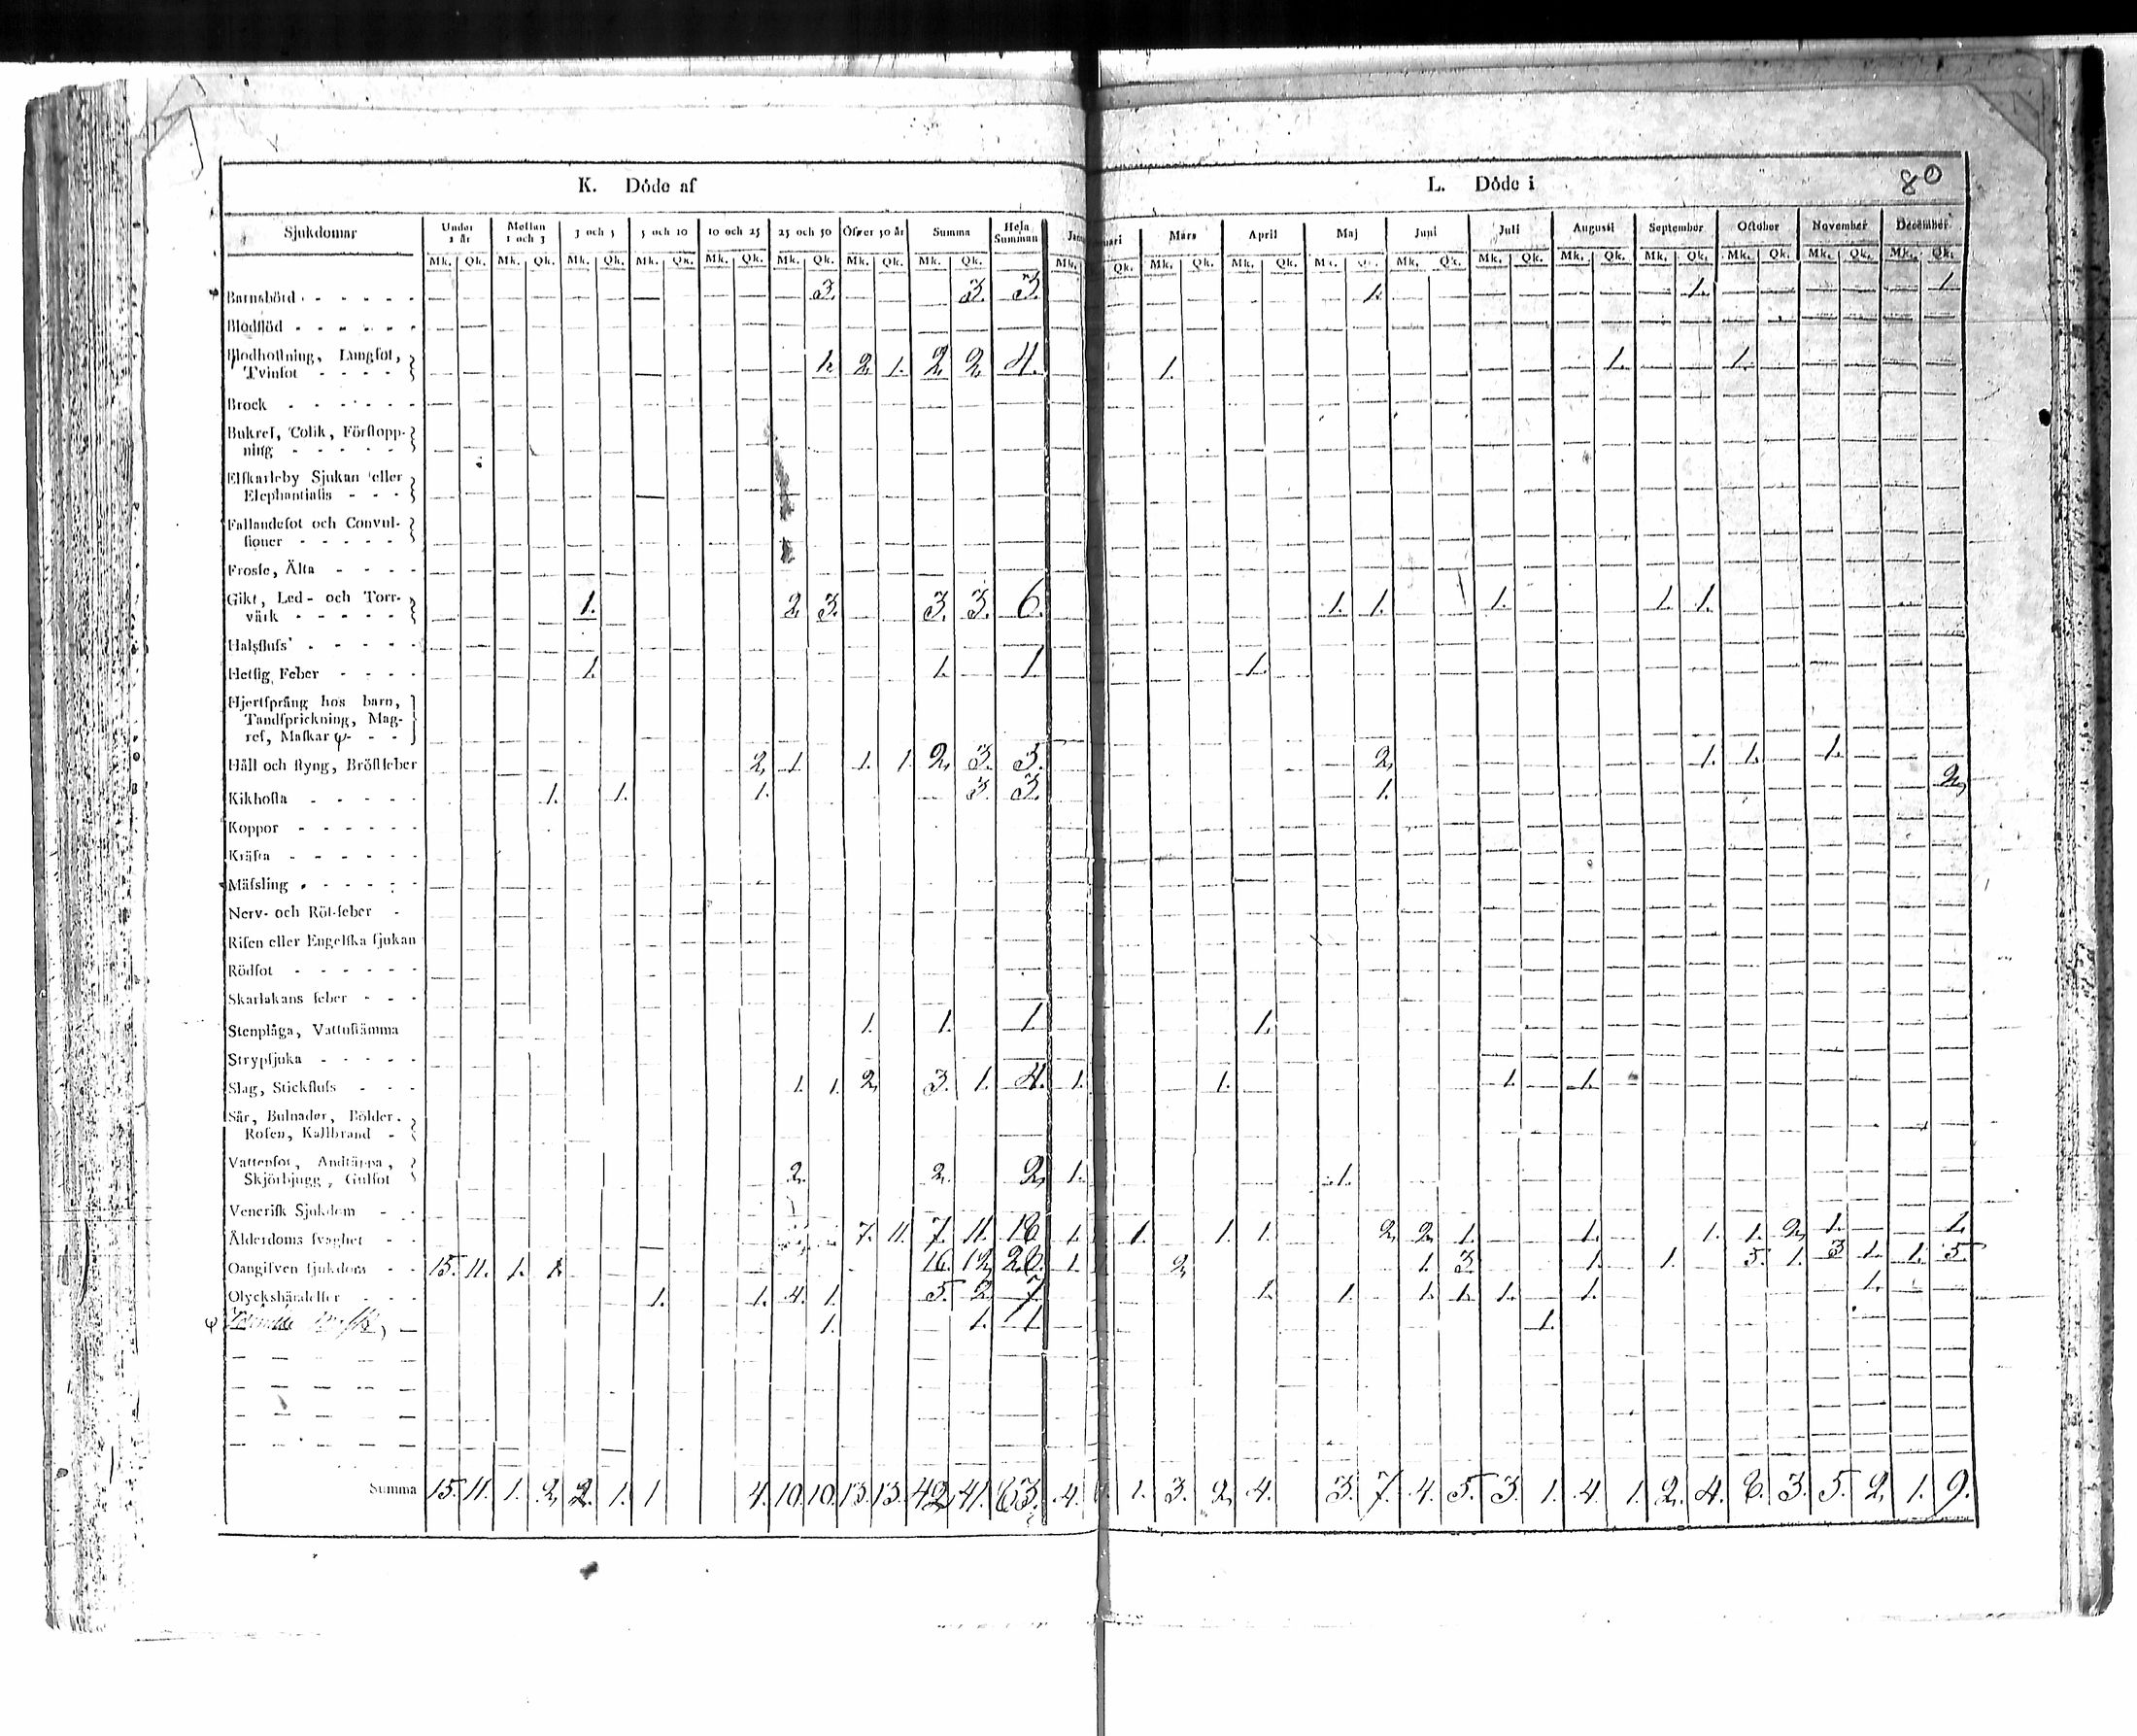 K. Döde af L. Döde i 80
Sjukdomar Under 1 år Mellan 1 och 3 3 och 5 5 och 10 10 och 25 25 och 50 Öfver 50 år Summa Hela Summan Januari Mars April Maj Juni Juli Augusti September October November December
Mk. Qk. Mk. Qk. Mk. Qk. Mk. Qk. Mk. Qk. Mk. Qk. Mk. Qk. Mk. Qk. Mk. Qk. Mk. Qk. Mk. Qk. Mk. Qk. Mk. Qk. Mk. Qk. Mk. Qk. Mk. Qk. Mk. Qk. Mk. Qk. Mk. Qk.
Barnsbörd 3. 3. 3. 1. 1. 1
Blodflöd
Blodhostning, Lungsot,
Tvinsot 1. 2, 1. 2, 2, 4. 1. 1. 1.
Brock
Bukref, Colik, Förstopp-
ning
Elfkarleby Sjukan eller
Elephantiasis
Fallandesot och Convul-
sioner
Frossa, Älta
Gikt, Led- och Torr-
värk 1. 2, 3. 3. 3. 6. 1. 1. 1. 1. 1.
Halsfluss
Hetsig Feber 1. 1. 1 1.
Hjertsprång hos barn,
Tandsprickning, Mag-
ref, Maskar ψ
Håll och styng, Bröstfeber 2, 1. 1. 1. 2, 3. 3. 2, 1. 1. 1.
Kikhosta 1. 1. 1. 3. 3. 1. 2,
Koppor
Kräfta
Mässling
Nerv- och Röt-feber
Risen eller Engelska sjukan
Rödsot
Skarlakans feber
Stenplåga, Vattustämma 1. 1. 1. 1.
Strypsjuka
Slag, Stickfluss 1. 1. 2, 3. 1. 4. 1. 1. 1. 1.
Sår, Bulnader, Bölder,
Rosen, Kallbrand
Vattensot, Andtäppa,
Skjörbjugg, Gulsot 2. 2. 2, 1. 1.
Venerisk Sjukdom
Ålderdoms svaghet 7. 11. 7. 11. 18. 1. 1. 1. 1. 2, 2, 1. 1. 1. 1. 2, 1. 1.
Oangifven sjukdom 15. 11. 1. 1. 16. 12, 28. 1. 2, 1 3. 1. 1. 5. 1. 3 1. 1. 5.
Olyckshändelser 1. 1. 4. 1. 5. 2. 7 1. 1. 1. 1. 1. 1. 1.
ψ 1. 1. 1 1.
Summa 15. 11. 1. 2, 2. 1. 1 4. 10. 10. 13. 13. 42, 41. 83. 4. 1. 3. 2, 4. 3. 7. 4. 5. 3. 1. 4. 1. 2. 4. 8. 3. 5. 2, 1. 9.